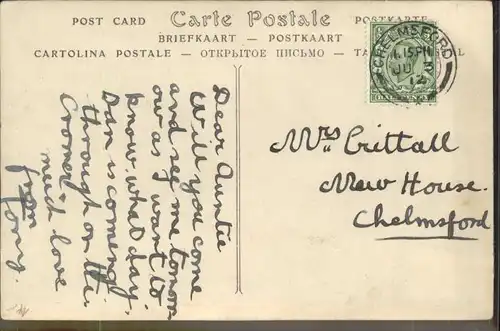 POST CARD Carte Postale POSTKARTE
BRIEFKAART — POSTKAART
CARTOLINA POSTALE — ОТКРЫТОЕ ПИСЬМО —
CHELMSFORD
JU
12
Dear Auntie
Will you come
and see me tomorr
ow as I want to
know what day
Dan is coming
through on the
Cromer
much love
from
Mrs Crittall
New House.
Chelmsford